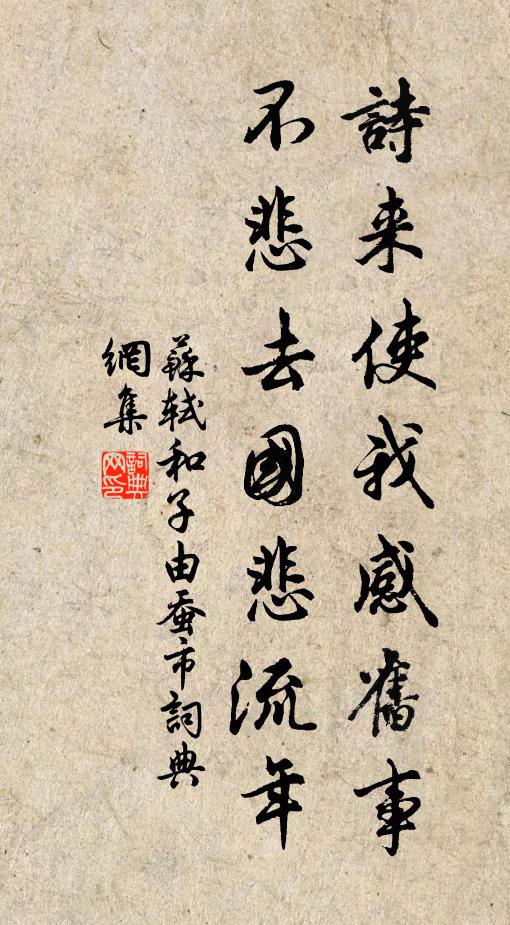 詩来使我感舊事
不悲去國悲流年
蘇軾和子由蚕市詞典
網集
詞典
网印